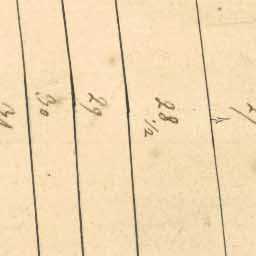 31
30
29
28 1/2